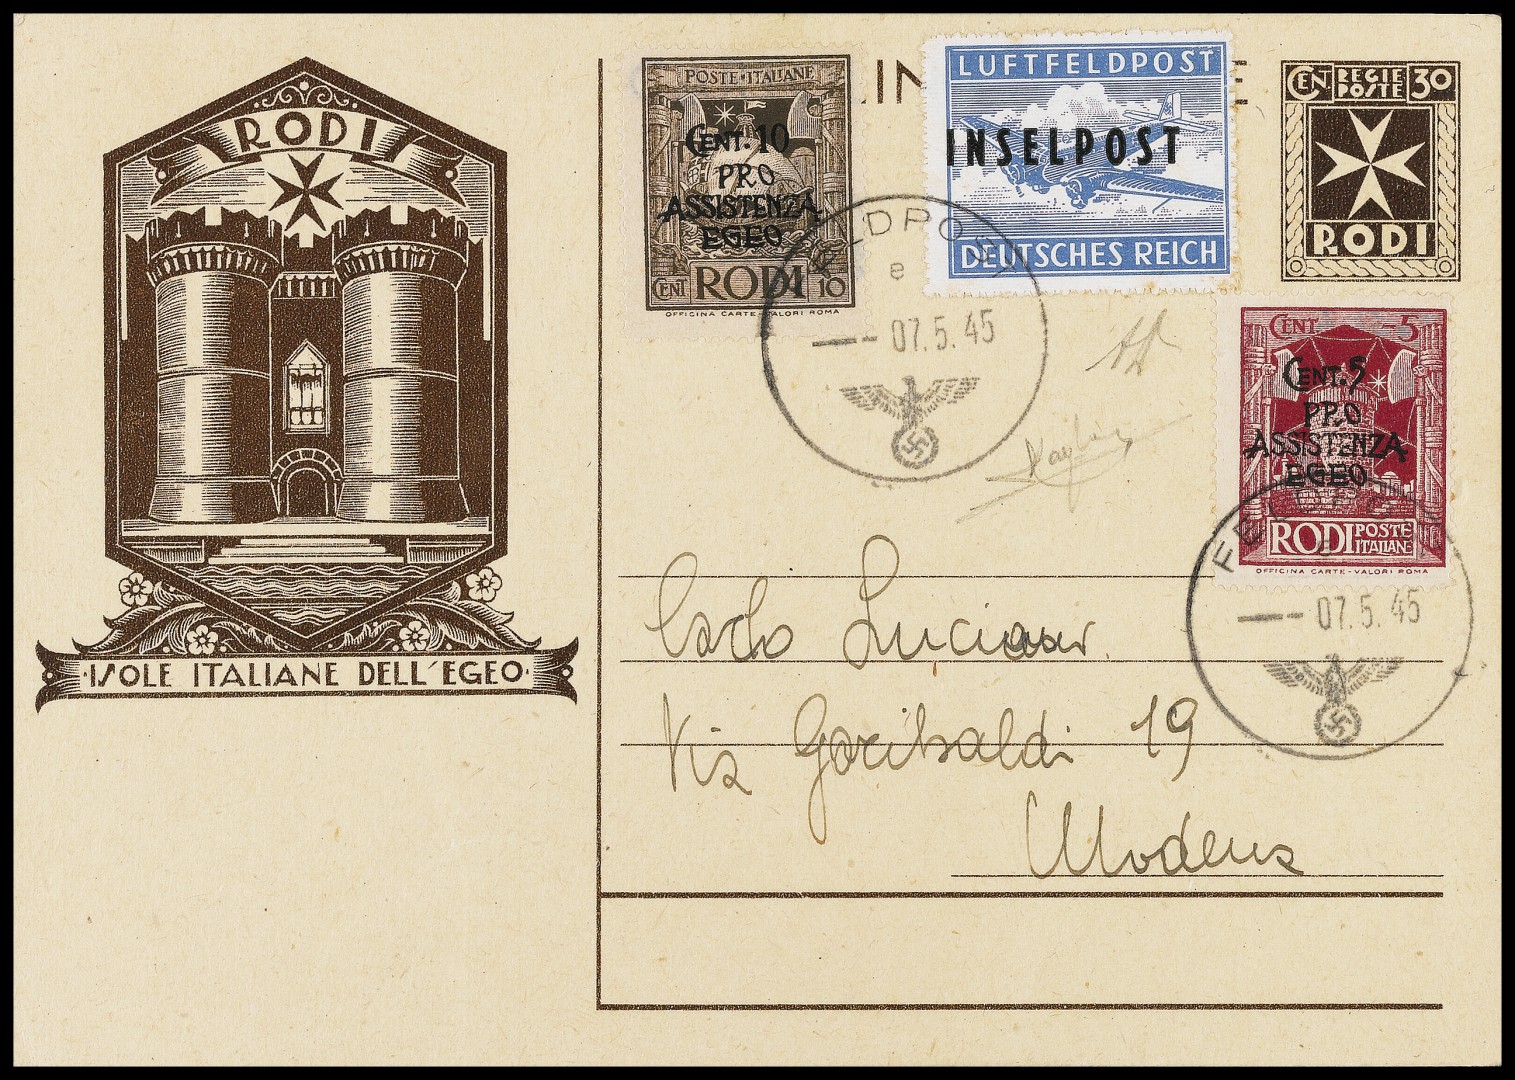 RODI
ISOLE ITALIANE DELL'EGEO
POSTE·ITALIANE
CENT. 10
PRO
ASSISTENZA
EGEO
CENT RODI 10
OFFICINA CARTE-VALORI ROMA
LUFTFELDPOST
INSELPOST
DEUTSCHES REICH
CEN REGIE POSTE 30
RODI
FELDPOST
e
07.5.45
CENT 5
CENT. 5
PRO
ASSISTENZA
EGEO
RODI POSTE ITALIANE
OFFICINA CARTE-VALORI ROMA
FELDPOST
07.5.45
Carlo Luciani
Via Garibaldi 19
Modena